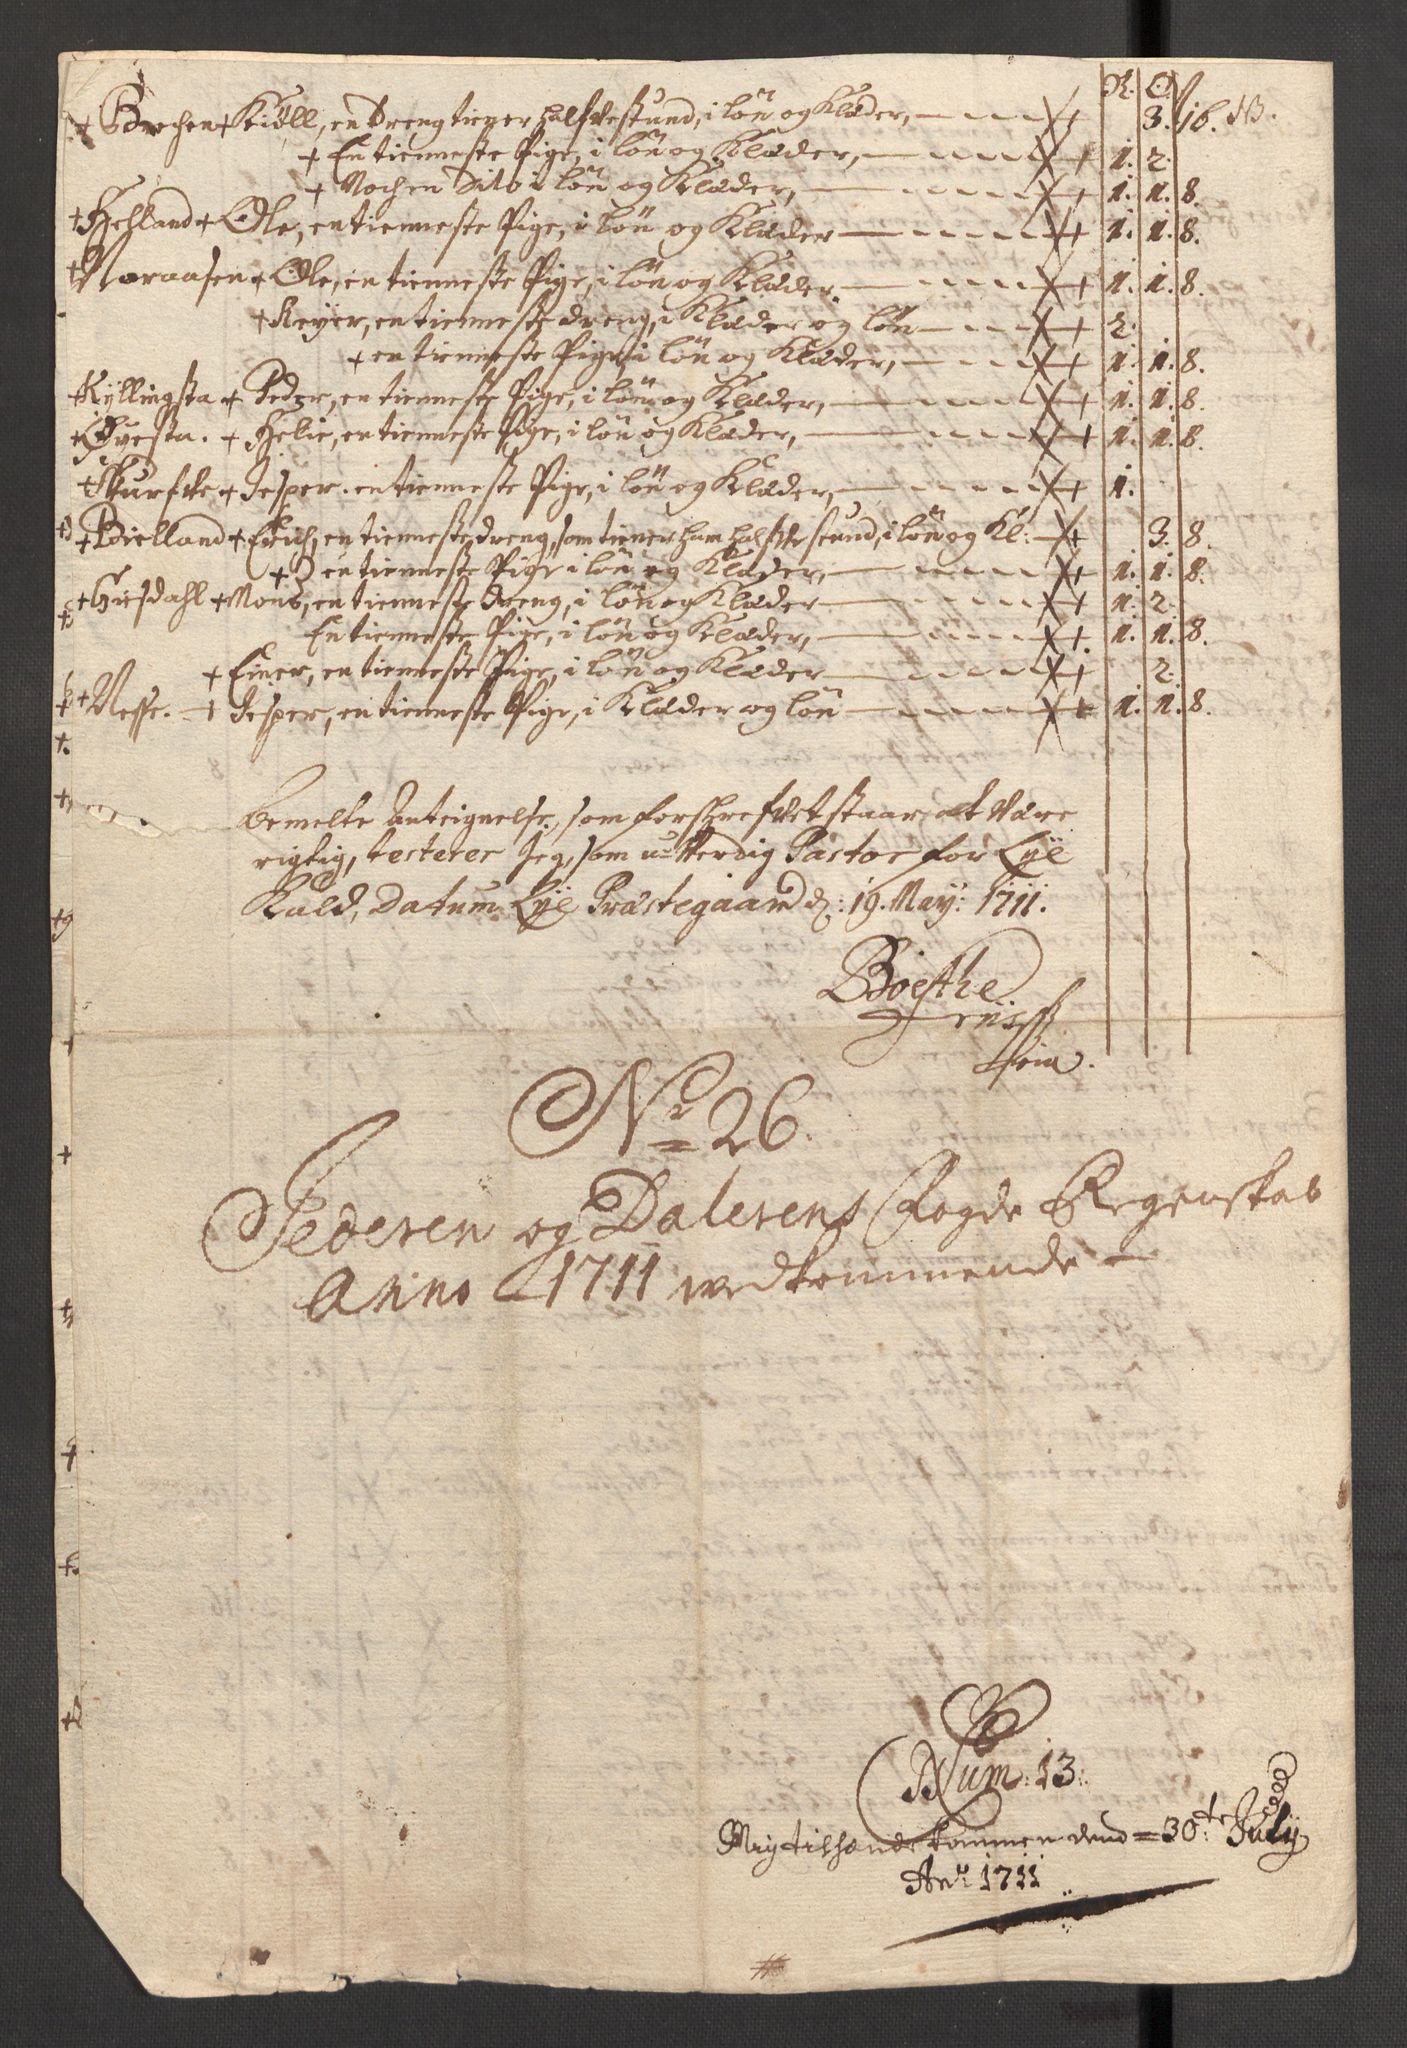 R. O.
+ Brechen + Kiöll, en Dreng tiener halfve stund, i lön og Klæder, 3. 16. NB.
+ En tienneste Pige, i lön og Klæder, 1. 2.
+ Noch en dito i lön og Klæder, 1. 1. 8.
+ Helland + Ole, en tienneste Pige, i lön og Klæder 1. 1. 8.
+ Noraasen + Ole, en tienneste Pige, i lön og Klæder. 1. 1. 8.
+ Reÿer, en tienneste dreng, i Klæder og lön 2.
+ en tienneste Pige i lön og Klæder, 1. 1. 8.
+ Kÿllingsta + Peder, en tienneste Pige, i lön og Klæder, 1. 1. 8.
+ Qvesta. + Helie, en tienneste Pige, i lön og Klæder, 1. 1. 8.
+ Skurfve + Jesper. en tienneste Pige, i lön og Klæder, 1.
+ Bielland + Erich, en tienneste dreng, som tiener ham halfve stund, i lön og Kl: 3. 8.
+ en tienneste Pige i lön og Klæder, 1. 1. 8.
+ Giesdahl + Mons, en tienneste dreng, i lön og Klæder 1. 2.
En tienneste Pige, i lön og Klæder, 1. 1. 8.
+ Einer, en tienneste Pige, i lön og Klæder 2.
+ Nesse. + Jesper, en tienneste Pige, i Klæder og lön 1. 1. 8.
bemelte Anteignelse, som forschrefvet staar, at være
rigtig, testerer Jeg, som uverdig Pastor for Lÿe
Kald, Datum Lÿe Præstegaard d: 19. Maÿ: 1711.
Boethe
No 26.
Jederen og Dalerens Fogde Regenskab
Anno 1711 vedkommende
Num: 13:
Mig tilhænde kommen dend = 30te Julÿ
Ano: 1711